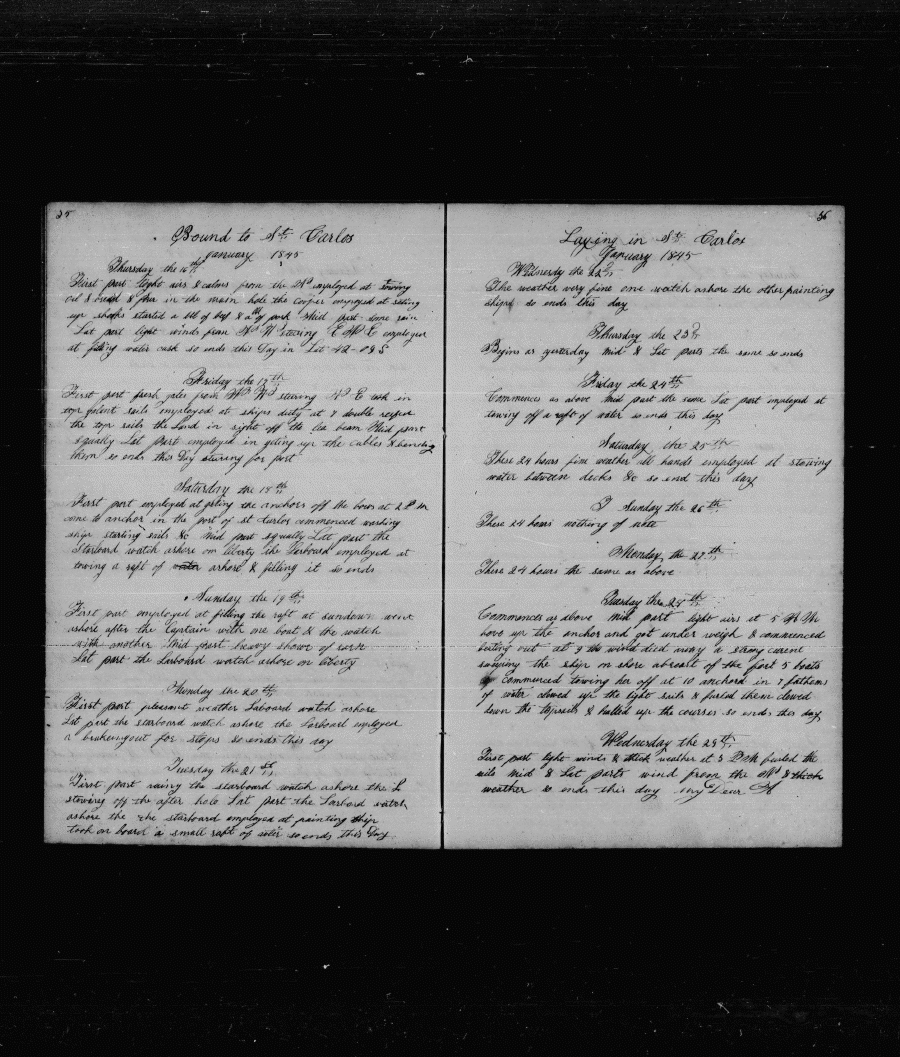 25
Bound to St Carlos
January 1845
Thursday the 16th
First part light airs & calms from the Nd employed at stowing
oil & bread & flu in the main hole the cooper employed at setting
up shooks started a bbl of beef & a of pork Mid part some rain
Lat part light winds from Wd N stering E N E employed
at filling water cask so ends this Day in Lat 42-09 S
Friday the 17th
First part fresh gales from stering N E took in
top galent sails employed at ships duty at 7 double reefed
the top sails the Land in sight off the lee beam Mid part
squally Lat part employed in geting up the cables & bending
them so ends this Day stering for port
Saturday the 18th
First part employed at geting the anchors off the bows at 2 P m
come to anchor in the port of st Carlos commenced washing
ship starting sails &c Mid part squally Latt part the
Starbord watch ashore on liberty the Larboard employed at
towing a raft of water ashore & filling it so ends
Sunday the 19th
First part employed at filling the raft at sundown went
ashore after the Captain with one boat & the watch
with another Mid part heavy showrs of rain
Lat part the Larboard watch ashore on liberty
Munday the 20th
First part pleasant weather Laboard watch ashore
Lat part the starboard watch ashore the Larboard employed
a brakeingout for stops so ends this day
Tuesday the 21st
First part rainy the starboard watch ashore the L
stowing off the after hole Lat part the Larbord watch
ashore the the starboard employed at painting ship
took on board a small raft of water so ends this Day
36
Laying in St Carlos
January 1845
Wednerdy the 22
The weather very fine one watch ashore the other painting
ship so ends this day
Thursday the 23
Begins as yesterday mid & Lat parts the same so ends
Friday the 24th
Commences as above Mid part the same Lat part employed at
towing off a raft of water so ends this day
Saturday the 25th
These 24 hours fine weather all hands employed at stowing
water between decks &c so end this day
Sunday the 26th
These 24 hours nothing of note
Monday the 27th
These 24 hours the same as above
Tuesday the 28th
Commences as above Mid part light airs at 5 A M
hove up the anchor and got under weigh & commenced
beiting out at 9 the wind died away a strong curent
swaying the ship on shore abreast of the fort 5 boats
Commenced towing her off at 10 anchord in 7 fathoms
of water clewed up the light sails & furled them clewed
down the topsails & hailed up the courses so ends this day
Wednerday the 29th
First part light winds & thick weather at 3 P M furled the
sails Mid & Lat parts wind from the Nd & thick
weather so ends this day My Dear